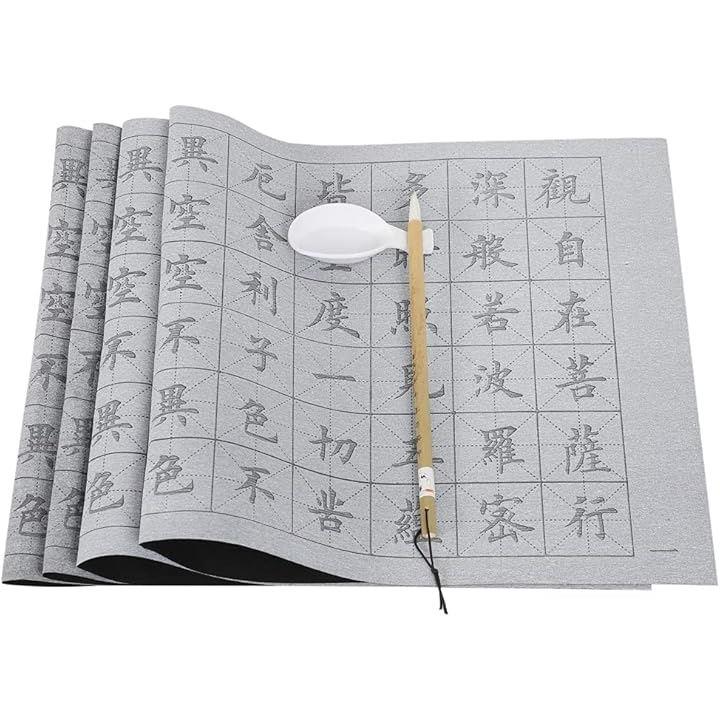 觀自在菩薩行
深般若波羅密
多時照見五蘊
皆空度一切苦
厄舍利子色不
異空空不異色
一
異空空不異色
異空空不異色
異空空不異色